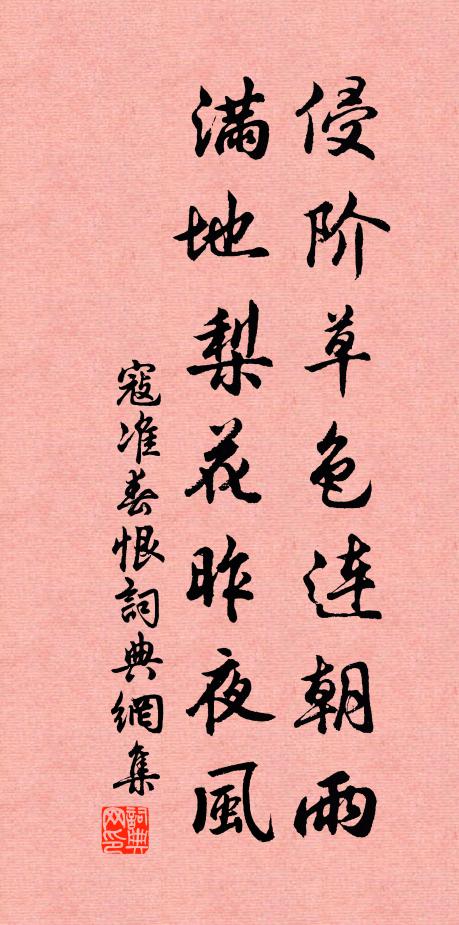 侵阶草色连朝雨
满地梨花昨夜風
寇准春恨詞典網集
詞典网印